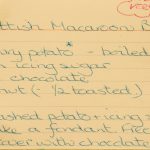 ttish Macaroon B
ury potato - boiled
icing sugar
chocolate
nut (- ½ toasted)
ashed potato + icing s
ake a fondant. Free
over with chocolate